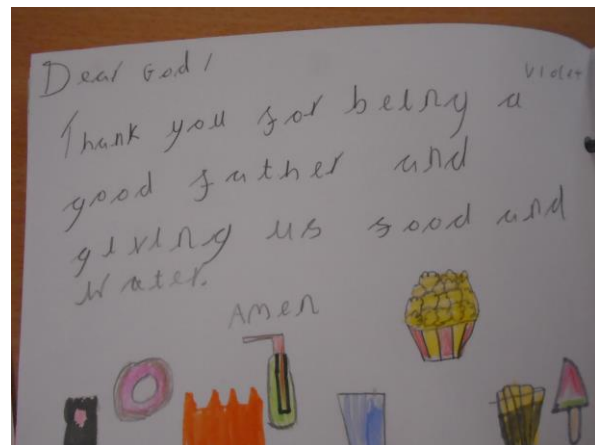 Dear God,
Violet
Thank you for being a
good father and
giving us food and
Water.
Amen